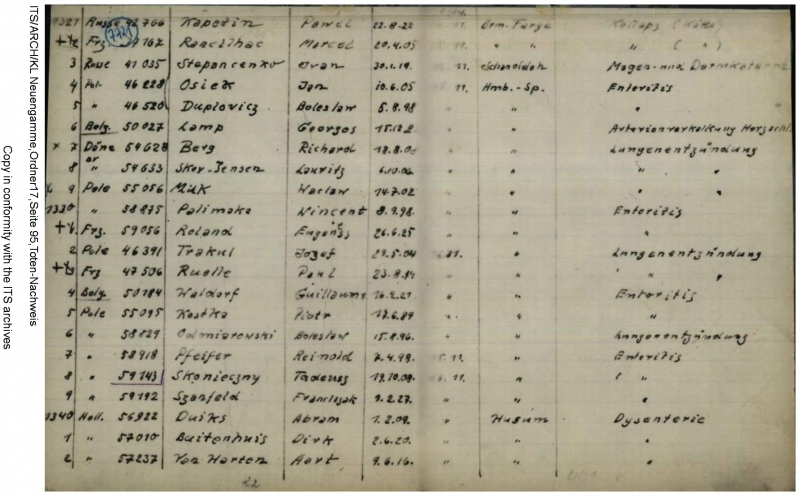 ITS/ARCH/KL Neuengamme, Ordner17, Seite 95, Toten-Nachweis
Copy in conformity with the ITS archives
1321 Russe 42766 Kapotin Pawel 22.8.22 11. Brm. Farge
Frz. 7721 Marcel 20.4.05 11. " " " ( " )
3 Russe 41035 Stepancenko Ivan 30.1.19. 11. Magen- und
4 Pol. 46228 Osiek Jan 10.6.05 11. Hmb.-Sp. Enteritis
5 " 46520 Duplovicz Boleslaw 5.9.98 " " "
6 Belg. 50027 Lamp Georges " " Arterienverkalkung
x 7 Däne 54628 Berg Richard " " Lungenentzündung
8 " 54633 Skov-Jensen Lauritz 6.10.06 " " " "
9 Pole 55056 Muk Waclaw 14.7.02 " " " "
1330 " 58875 Palimaka Wincent 8.9.98. " " Enteritis
Frz. 59056 Roland 26.6.25 " " "
2 Pole 46391 Trakul Jozef 11. " Lungenentzündung
Frz 47506 Ruelle Paul " " " "
4 Belg. 50784 Waldorf Guillaume " " Enteritis
5 Pole 55095 Kostka Piotr 17.6.89 " " "
6 " 58829 Odmiarowski Boleslaw 15.8.96. " " Lungenentzündung
7 " 58918 Pfeifer Reinold 7.4.98. 11. " Enteritis
8 " 59143 Skonieczny Tadeusz 19.10.08. 11. " "
9 " 59192 Szenfeld Franciszek 9.2.27. " " "
1340 Holl. 56922 Duiks Abram 1.2.09. " Husum Dysenterie
1 " 57010 Buitenhuis Dirk 2.6.20. " " "
2 " 57237 Van Harten Aart 9.6.16. " " "
22